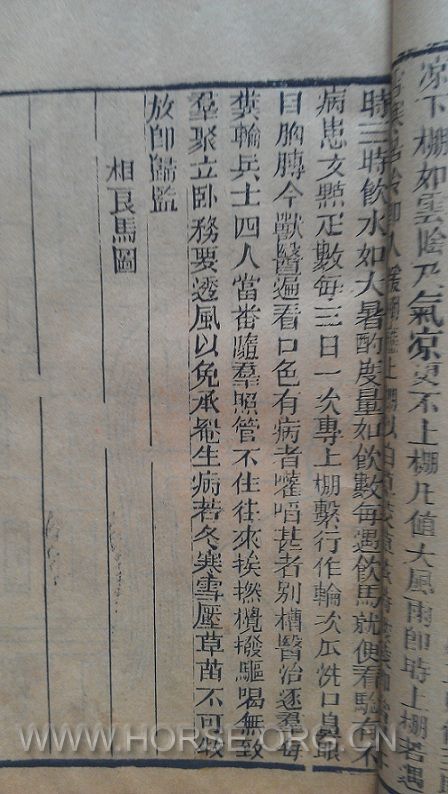 凉下棚如雲陰乃氣凉更不上棚凡值大風雨即時上棚若遇
時三時飲水如大暑酌度量如飲數每遇飲馬就便看驗有不
病患支點疋數每三日一次專上棚繫行作輪次瓜洗口鼻眼
目胸膊令獸醫遍看口色有病者嚾啗甚者別槽醫治逐羣每
糞輪兵士四人當番隨羣照管不住往來挨撚攪撥驅喝無致
羣聚立卧務要透風以免承熱生病若冬寒雪壓草苗不可
放即歸監
相良馬圖
WWW.HORSE.ORG.CN